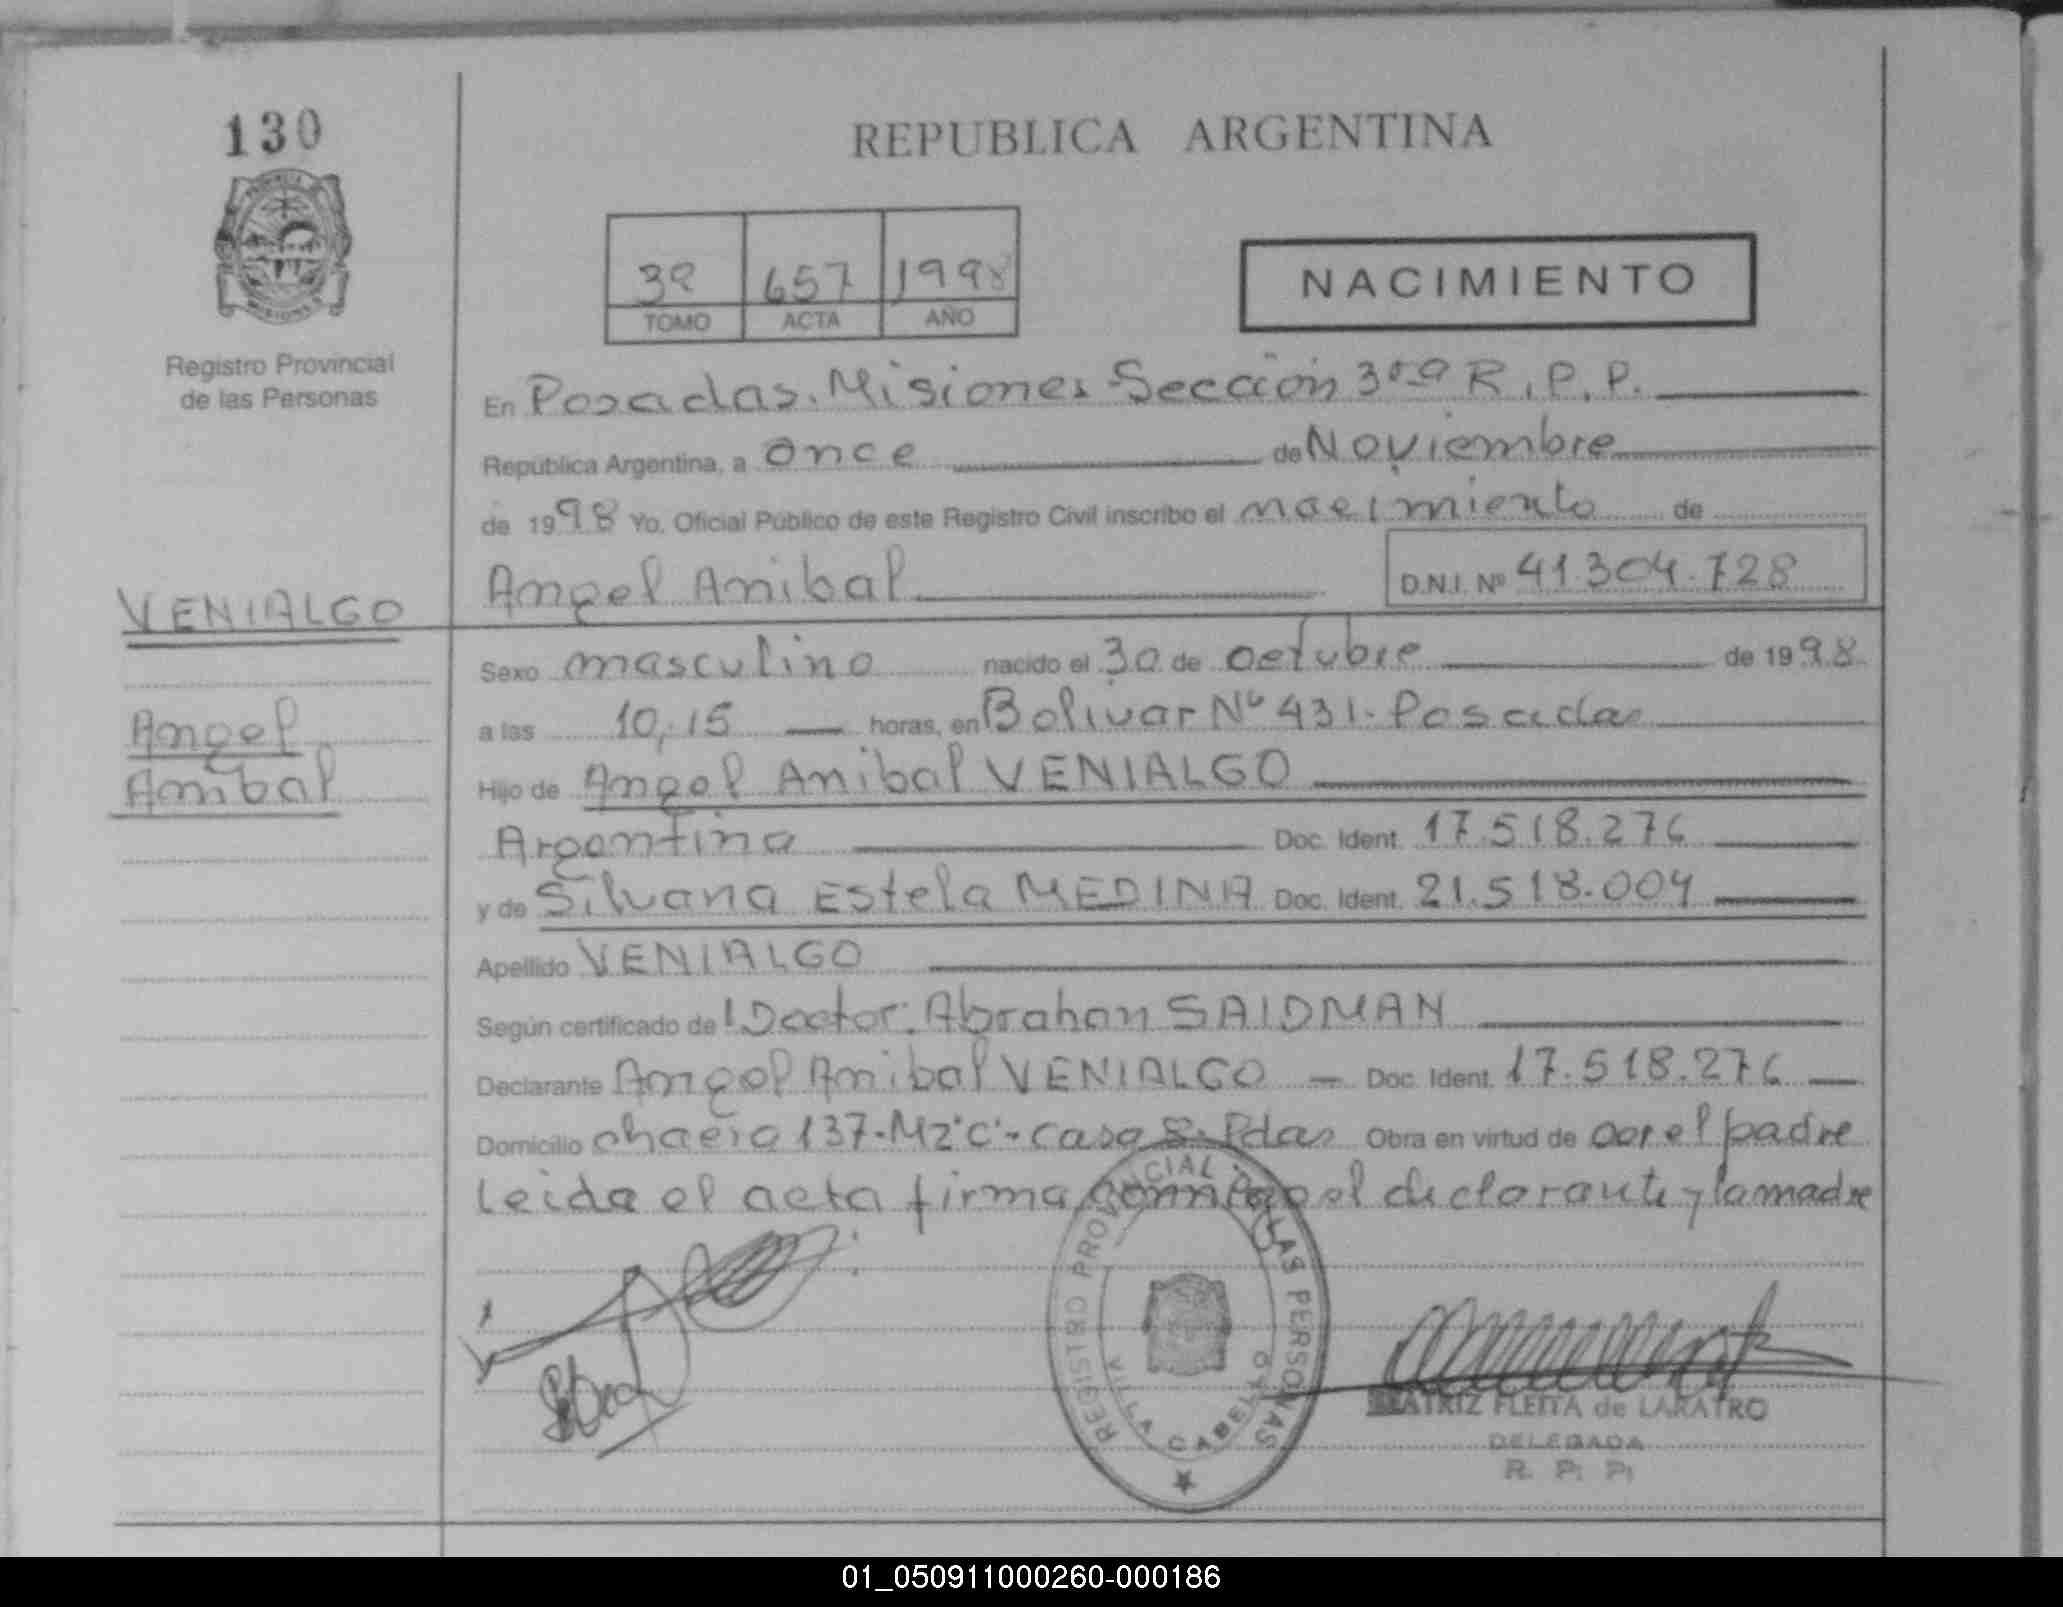 130
REPUBLICA ARGENTINA
Registro Provincial
de las Personas
3º 657 1998
TOMO ACTA AÑO
NACIMIENTO
En Posadas. Misiones Sección 3ra R.P.P.
República Argentina, a once de Noviembre
de 1998 Yo. Oficial Público de este Registro Civil inscribo el nacimiento de
Angel Anibal D.N.I. Nº 41.304.728
VENIALGO
Angel
Anibal
Sexo masculino nacido el 30 de octubre de 1998
a las 10,15 horas, en Bolivar Nº 431. Posadas
Hijo de Angel Anibal VENIALGO
Argentina Doc. Ident. 17.518.276
y de Silvana Estela MEDINA Doc. Ident. 21.518.004
Apellido VENIALGO
Según certificado de Doctor: Abrahan SAIDMAN
Declarante Angel Anibal VENIALGO - Doc. Ident. 17.518.276
Domicilio chacra 137-Mz"C"- casa 8. Pdas Obra en virtud de ser el padre
Leida el acta firma conmigo el declarante y la madre
REGISTRO PROVINCIAL LAS PERSONAS
VILLA CABELLO
BEATRIZ FLEITA de LARATRO
DELEGADA
R. P. P.
01_050911000260-000186